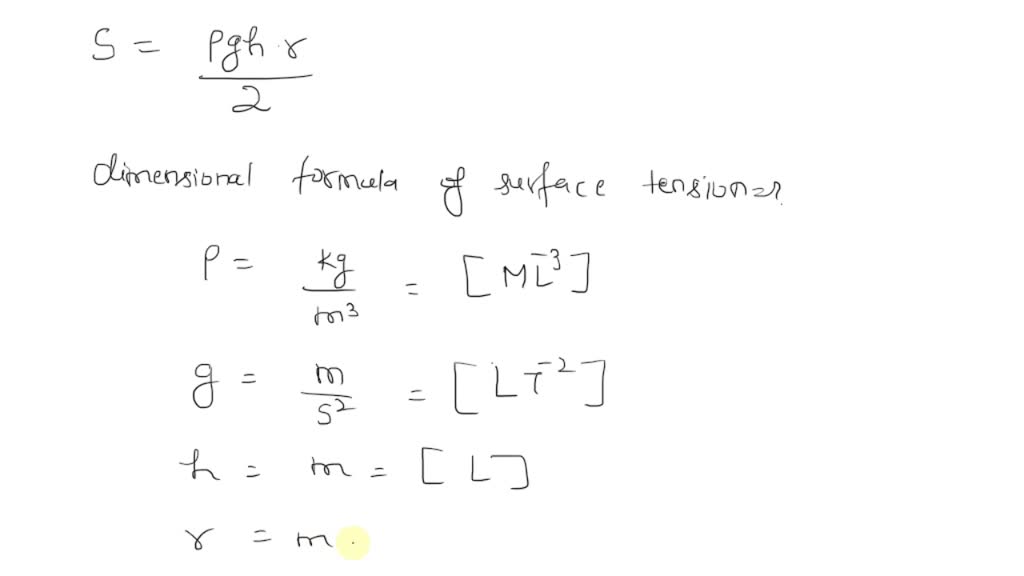 S = ρgh.r / 2
dimensional formula of surface tension=?
ρ = kg/m³ = [ML⁻³]
g = m/s² = [LT⁻²]
h = m = [L]
r = m